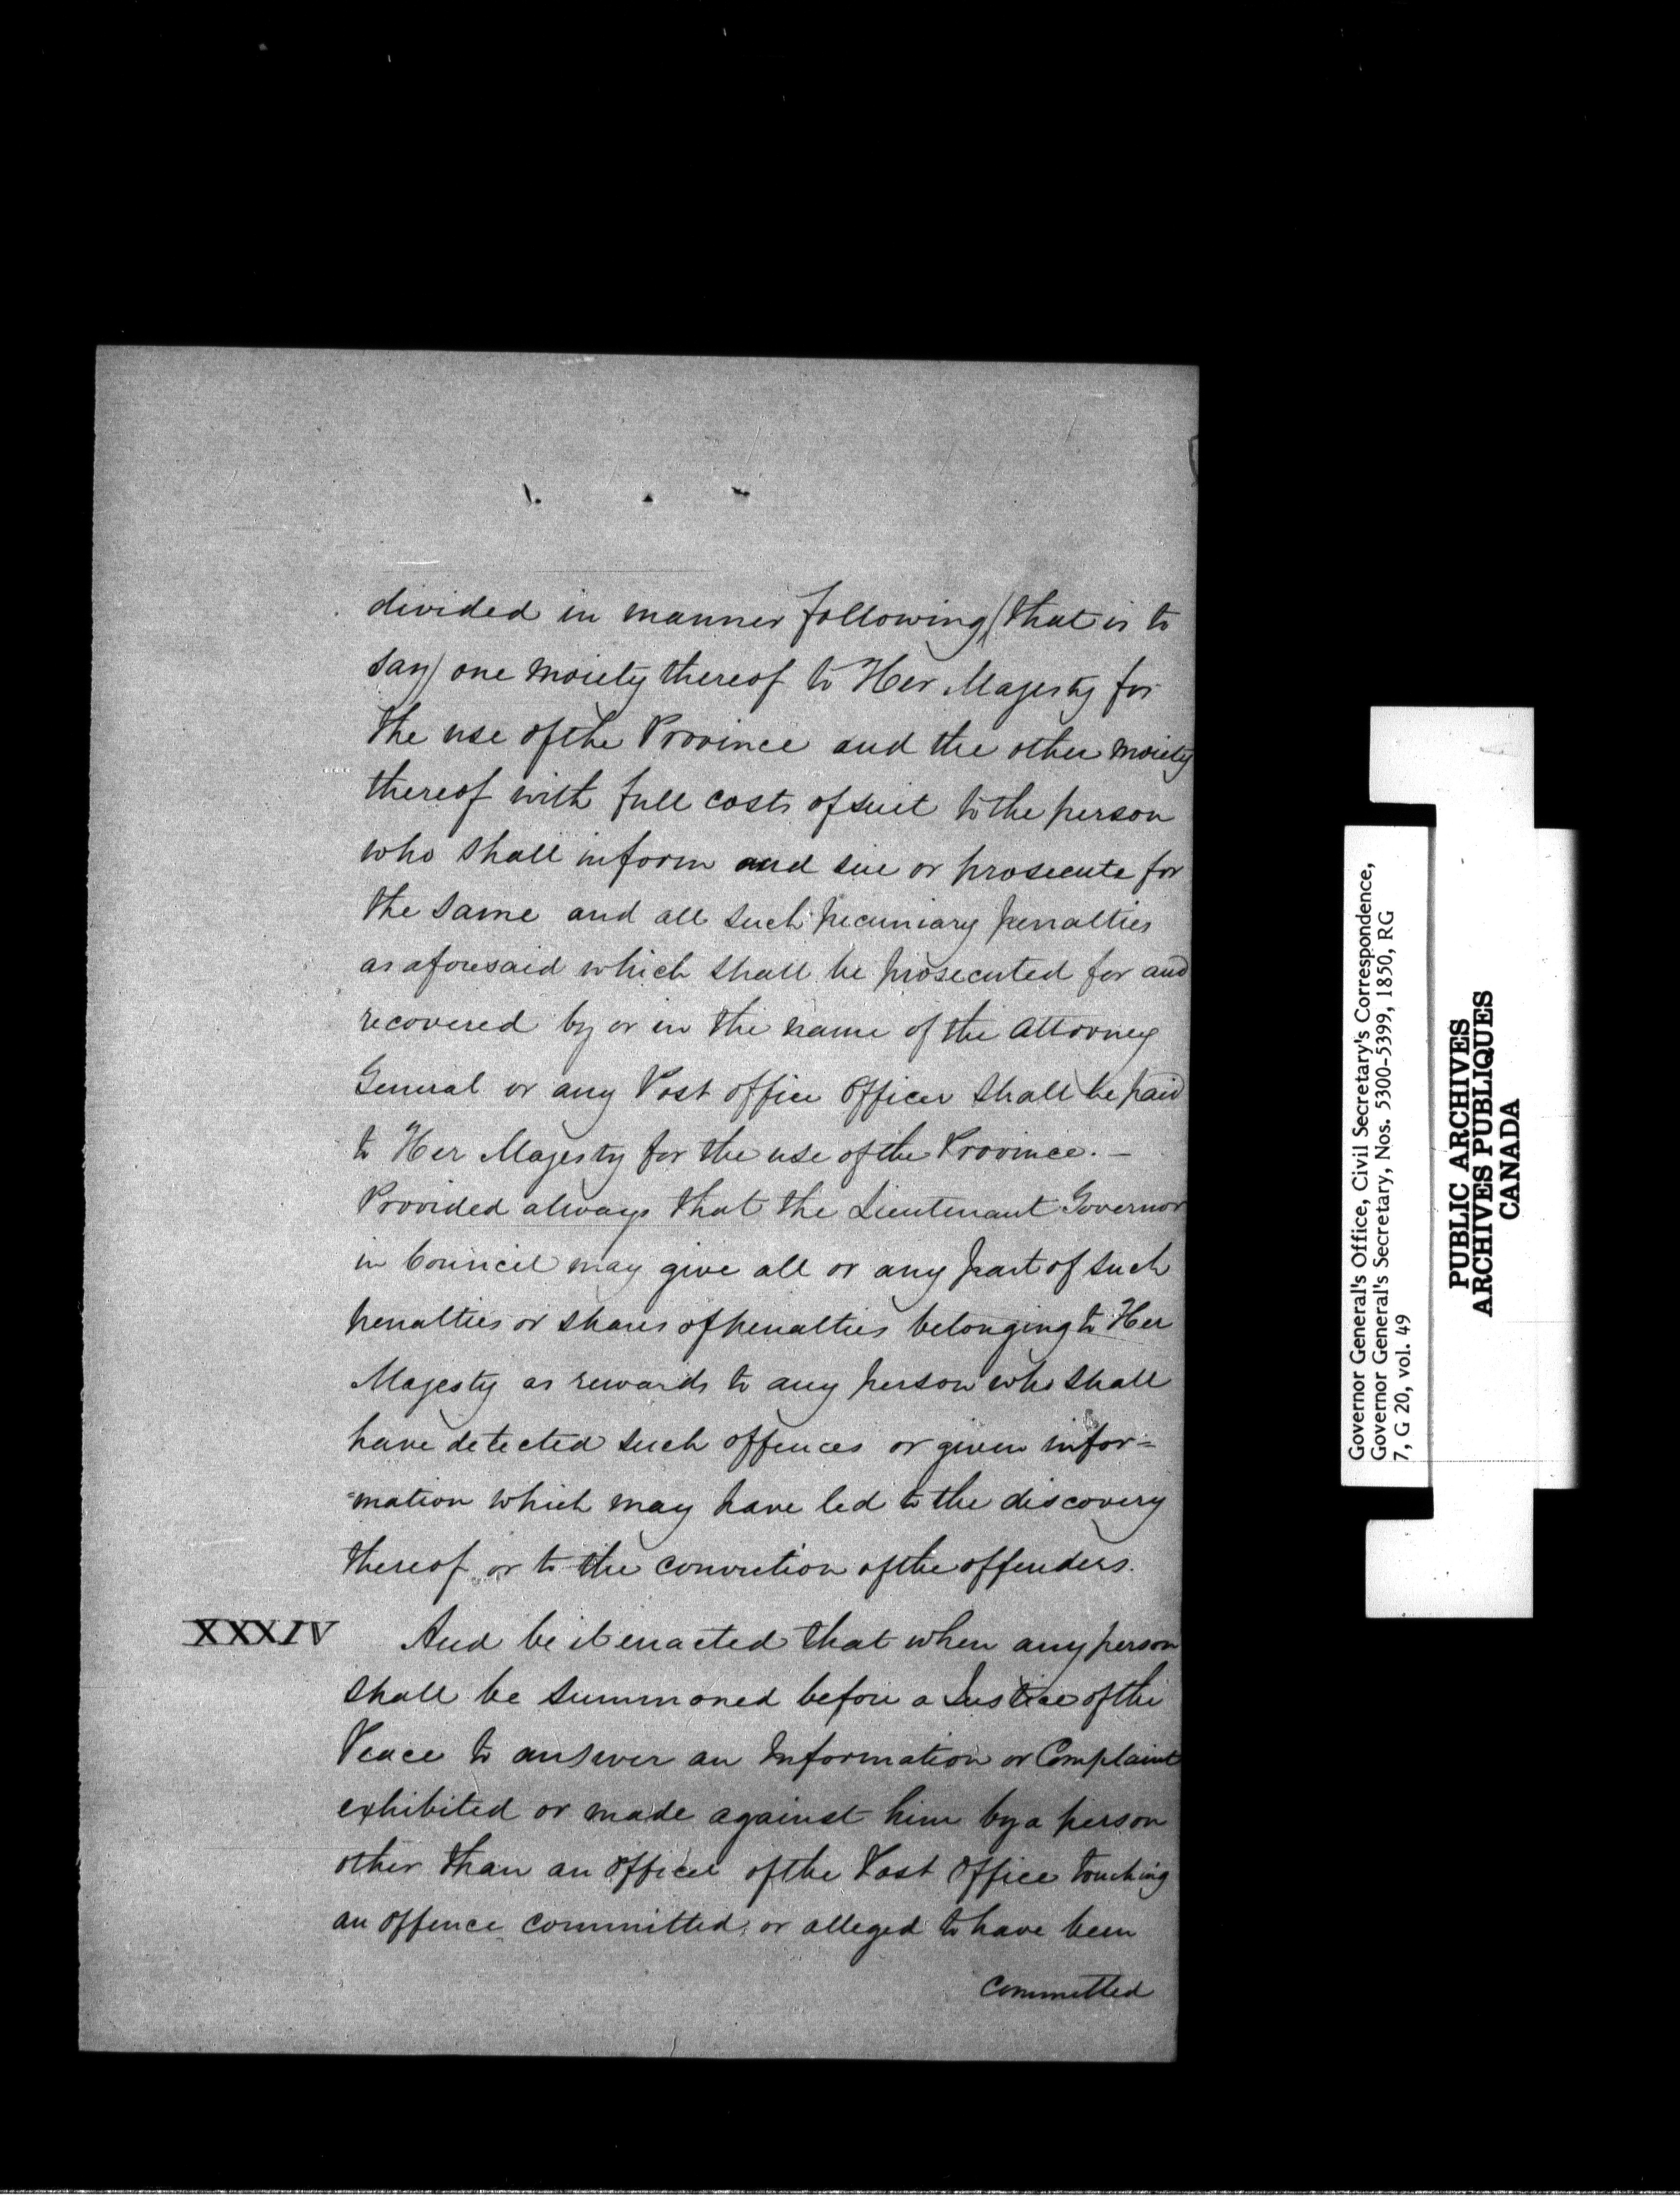 divided in manner following (that is to
say) one moiety thereof to Her Majesty for
the use of the Province and the other moiety
thereof with full costs of suit to the person
who shall inform and sue or prosecute for
the same and all such pecuniary penalties
as aforesaid which shall be prosecuted for and
recovered by or in the name of the Attorney
General or any Post office Officer shall be paid
to Her Majesty for the use of the Province. –
Provided always that the Lieutenant Governor
in Council may give all or any part of such
penalties or shares of penalties belonging to Her
Majesty as rewards to any person who shall
have detected such offences or given infor=
=mation which may have led to the discovery
thereof or to the conviction of the offenders.
XXXIV And be it enacted that when any person
shall be summoned before a Justice of the
Peace to answer an Information or Complaint
exhibited or made against him by a person
other than an Officer of the Post Office touching
an offence committed or alleged to have been
committed
Governor General's Office, Civil Secretary's Correspondence,
Governor General's Secretary, Nos. 5300-5399, 1850, RG
7, G 20, vol. 49
PUBLIC ARCHIVES
ARCHIVES PUBLIQUES
CANADA